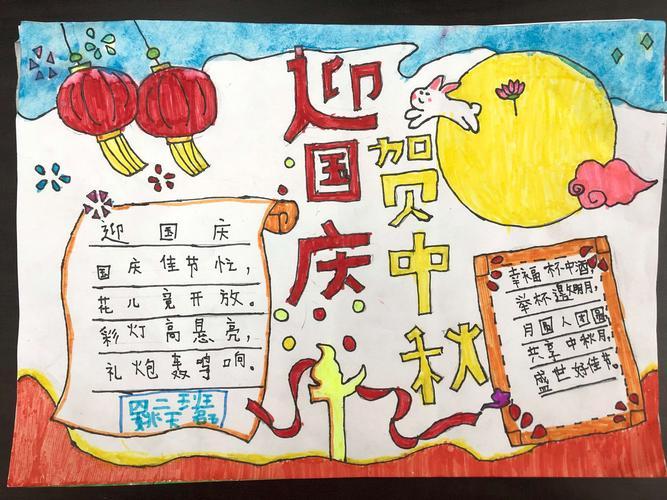 迎国庆
贺中秋
迎国庆
国庆佳节忙，
花儿竟开放。
彩灯高悬亮，
礼炮轰鸣响。
四二班
姚天君
幸福杯中酒，
举杯邀明月，
月圆人团圆，
共享中秋月，
盛世好佳节。